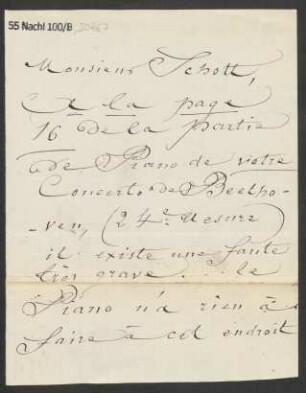 55 Nachl 100/B
Monsieur Schott,
à la page
16 de la partie
de Piano de votre
Concerto de Beetho-
-ven, (24e Mesure
il existe une faute
très grave... le
Piano n'a rien à
faire à cet endroit